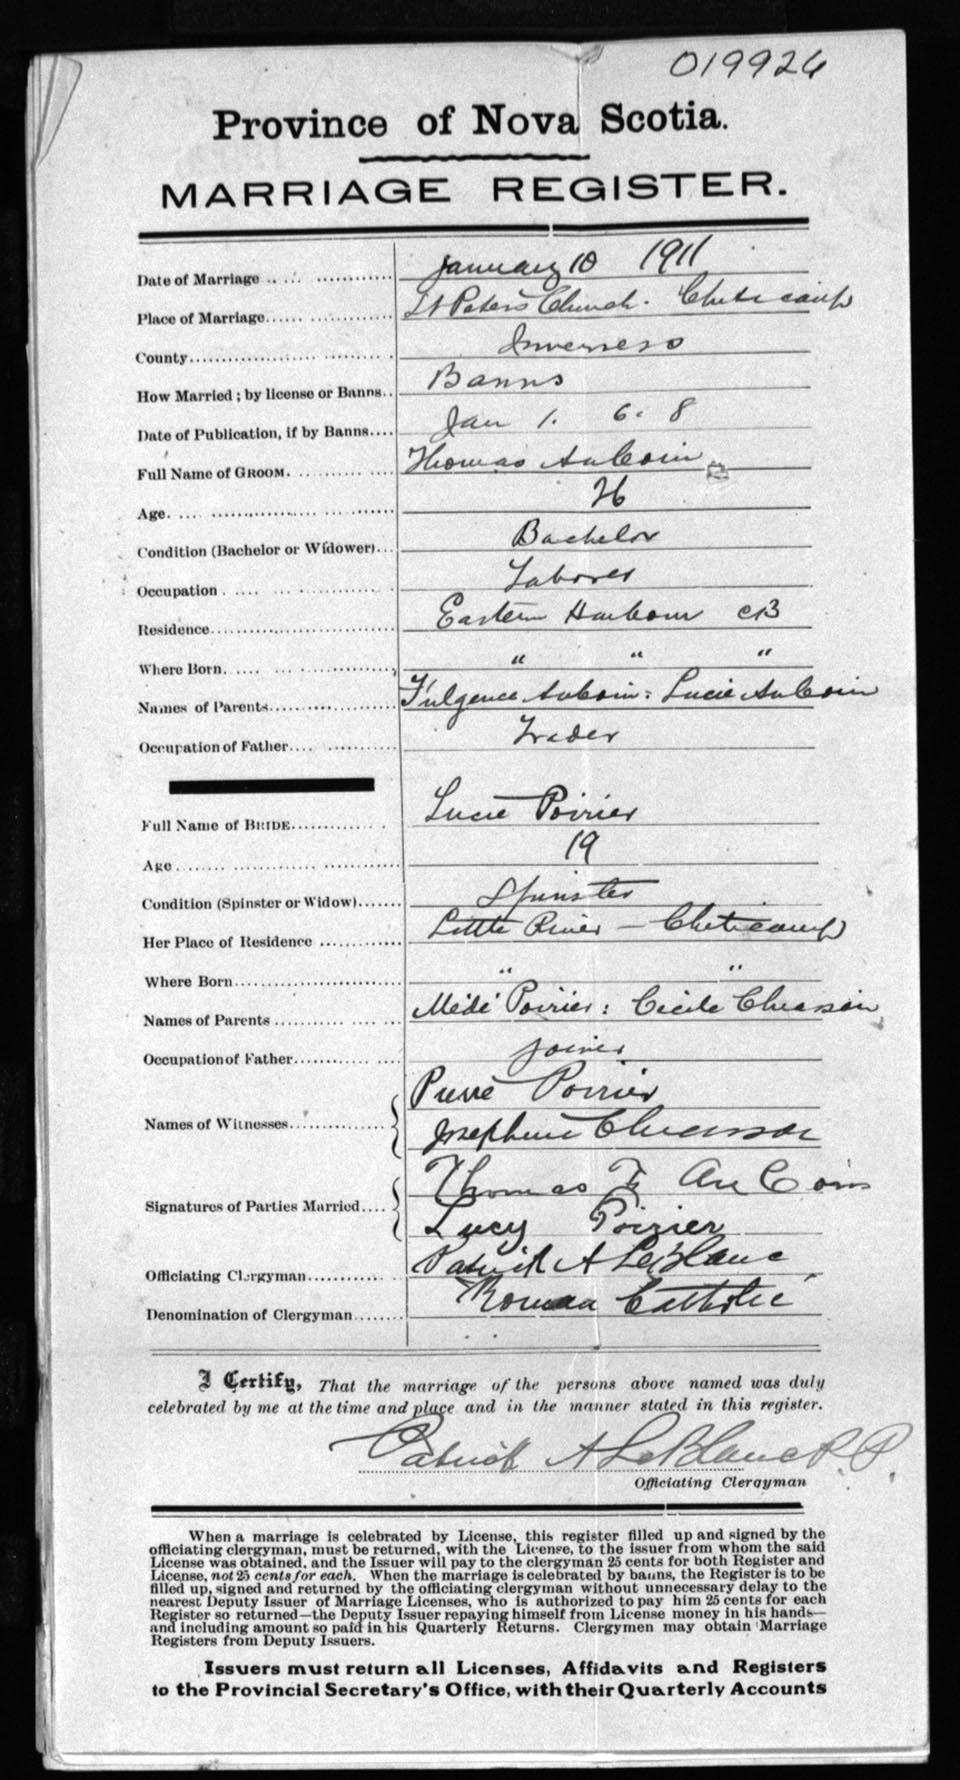 019926
Province of Nova Scotia.
MARRIAGE REGISTER.
Date of Marriage January 10 1911
Place of Marriage St Peters Church. Cheticamp
County Inverness
How Married ; by license or Banns Banns
Date of Publication, if by Banns Jan 1. 6. 8
Full Name of GROOM. Thomas AuCoin
Age. 26
Condition (Bachelor or Widower) Bachelor
Occupation Laborer
Residence Eastern Harbour CB
Where Born " " "
Names of Parents Fulgence AuCoin : Lucie AuCoin
Occupation of Father Trader
Full Name of BRIDE Lucie Poirier
Age 19
Condition (Spinster or Widow) Spinster
Her Place of Residence Little River – Cheticamp
Where Born " "
Names of Parents Médé Poirier : Cécile Chiasson
Occupation of Father joiner
Names of Witnesses Pierre Poirier
Josephine Chiasson
Signatures of Parties Married Thomas F AuCoin
Lucy Poirier
Officiating Clergyman Patrick A LeBlanc
Denomination of Clergyman Roman Catholic
I Certify, That the marriage of the persons above named was duly
celebrated by me at the time and place and in the manner stated in this register.
Patrick A LeBlanc P. P.
Officiating Clergyman
When a marriage is celebrated by License, this register filled up and signed by the
officiating clergyman, must be returned, with the License, to the issuer from whom the said
License was obtained, and the Issuer will pay to the clergyman 25 cents for both Register and
License, not 25 cents for each. When the marriage is celebrated by banns, the Register is to be
filled up, signed and returned by the officiating clergyman without unnecessary delay to the
nearest Deputy Issuer of Marriage Licenses, who is authorized to pay him 25 cents for each
Register so returned—the Deputy Issuer repaying himself from License money in his hands—
and including amount so paid in his Quarterly Returns. Clergymen may obtain Marriage
Registers from Deputy Issuers.
Issuers must return all Licenses, Affidavits and Registers
to the Provincial Secretary's Office, with their Quarterly Accounts